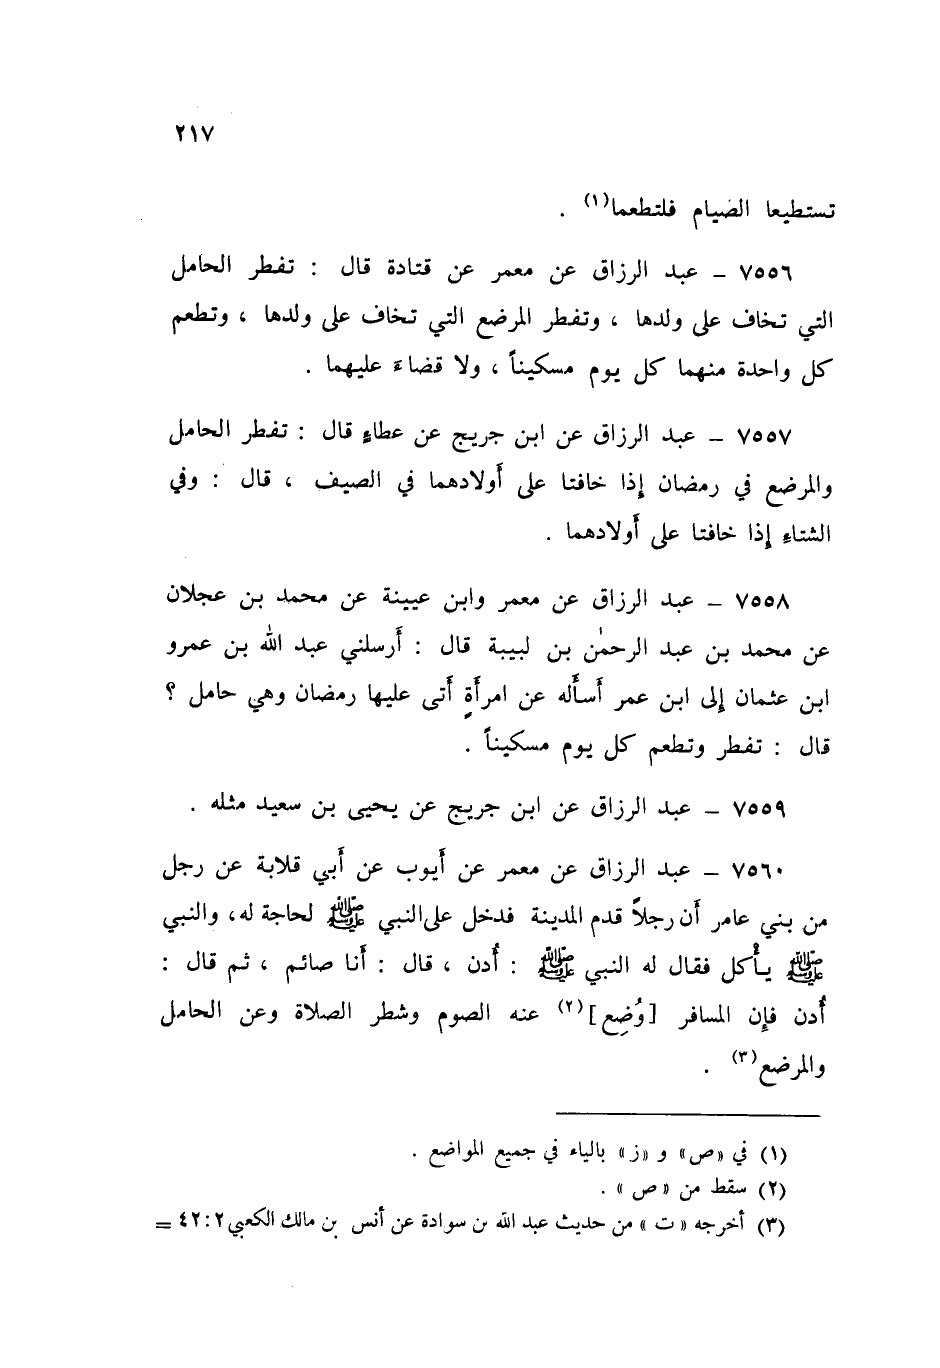 ٢١٧
تستطيعا الصيام فلتطعما(١) .
٧٥٥٦ – عبد الرزاق عن معمر عن قتادة قال : تفطر الحامل
التي تخاف على ولدها ، وتفطر المرضع التي تخاف على ولدها ، وتطعم
كل واحدة منهما كل يوم مسكيناً ، ولا قضاءَ عليهما .
٧٥٥٧ – عبد الرزاق عن ابن جريج عن عطاءٍ قال : تفطر الحامل
والمرضع في رمضان إذا خافتا على أولادهما في الصيف ، قال : وفي
الشتاء إذا خافتا على أولادهما .
٧٥٥٨ – عبد الرزاق عن معمر وابن عيينة عن محمد بن عجلان
عن محمد بن عبد الرحمٰن بن لبيبة قال : أرسلني عبد الله بن عمرو
ابن عثمان إلى ابن عمر أسأله عن امرأةٍ أتى عليها رمضان وهي حامل ؟
قال : تفطر وتطعم كل يوم مسكيناً .
٧٥٥٩ – عبد الرزاق عن ابن جريج عن يحيى بن سعيد مثله .
٧٥٦٠ – عبد الرزاق عن معمر عن أيوب عن أبي قلابة عن رجل
من بني عامر أن رجلاً قدم المدينة فدخل على النبي ﷺ لحاجة له، والنبي
ﷺ يأكل فقال له النبي ﷺ : أُدن ، قال : أنا صائم ، ثم قال :
أُدن فإن المسافر [وُضِع](٢) عنه الصوم وشطر الصلاة وعن الحامل
والمرضع(٣) .
(١) في «ص» و «ز» بالياء في جميع المواضع .
(٢) سقط من «ص» .
(٣) أخرجه «ت» من حديث عبد الله بن سوادة عن أنس بن مالك الكعبي ٤٢:٢ =